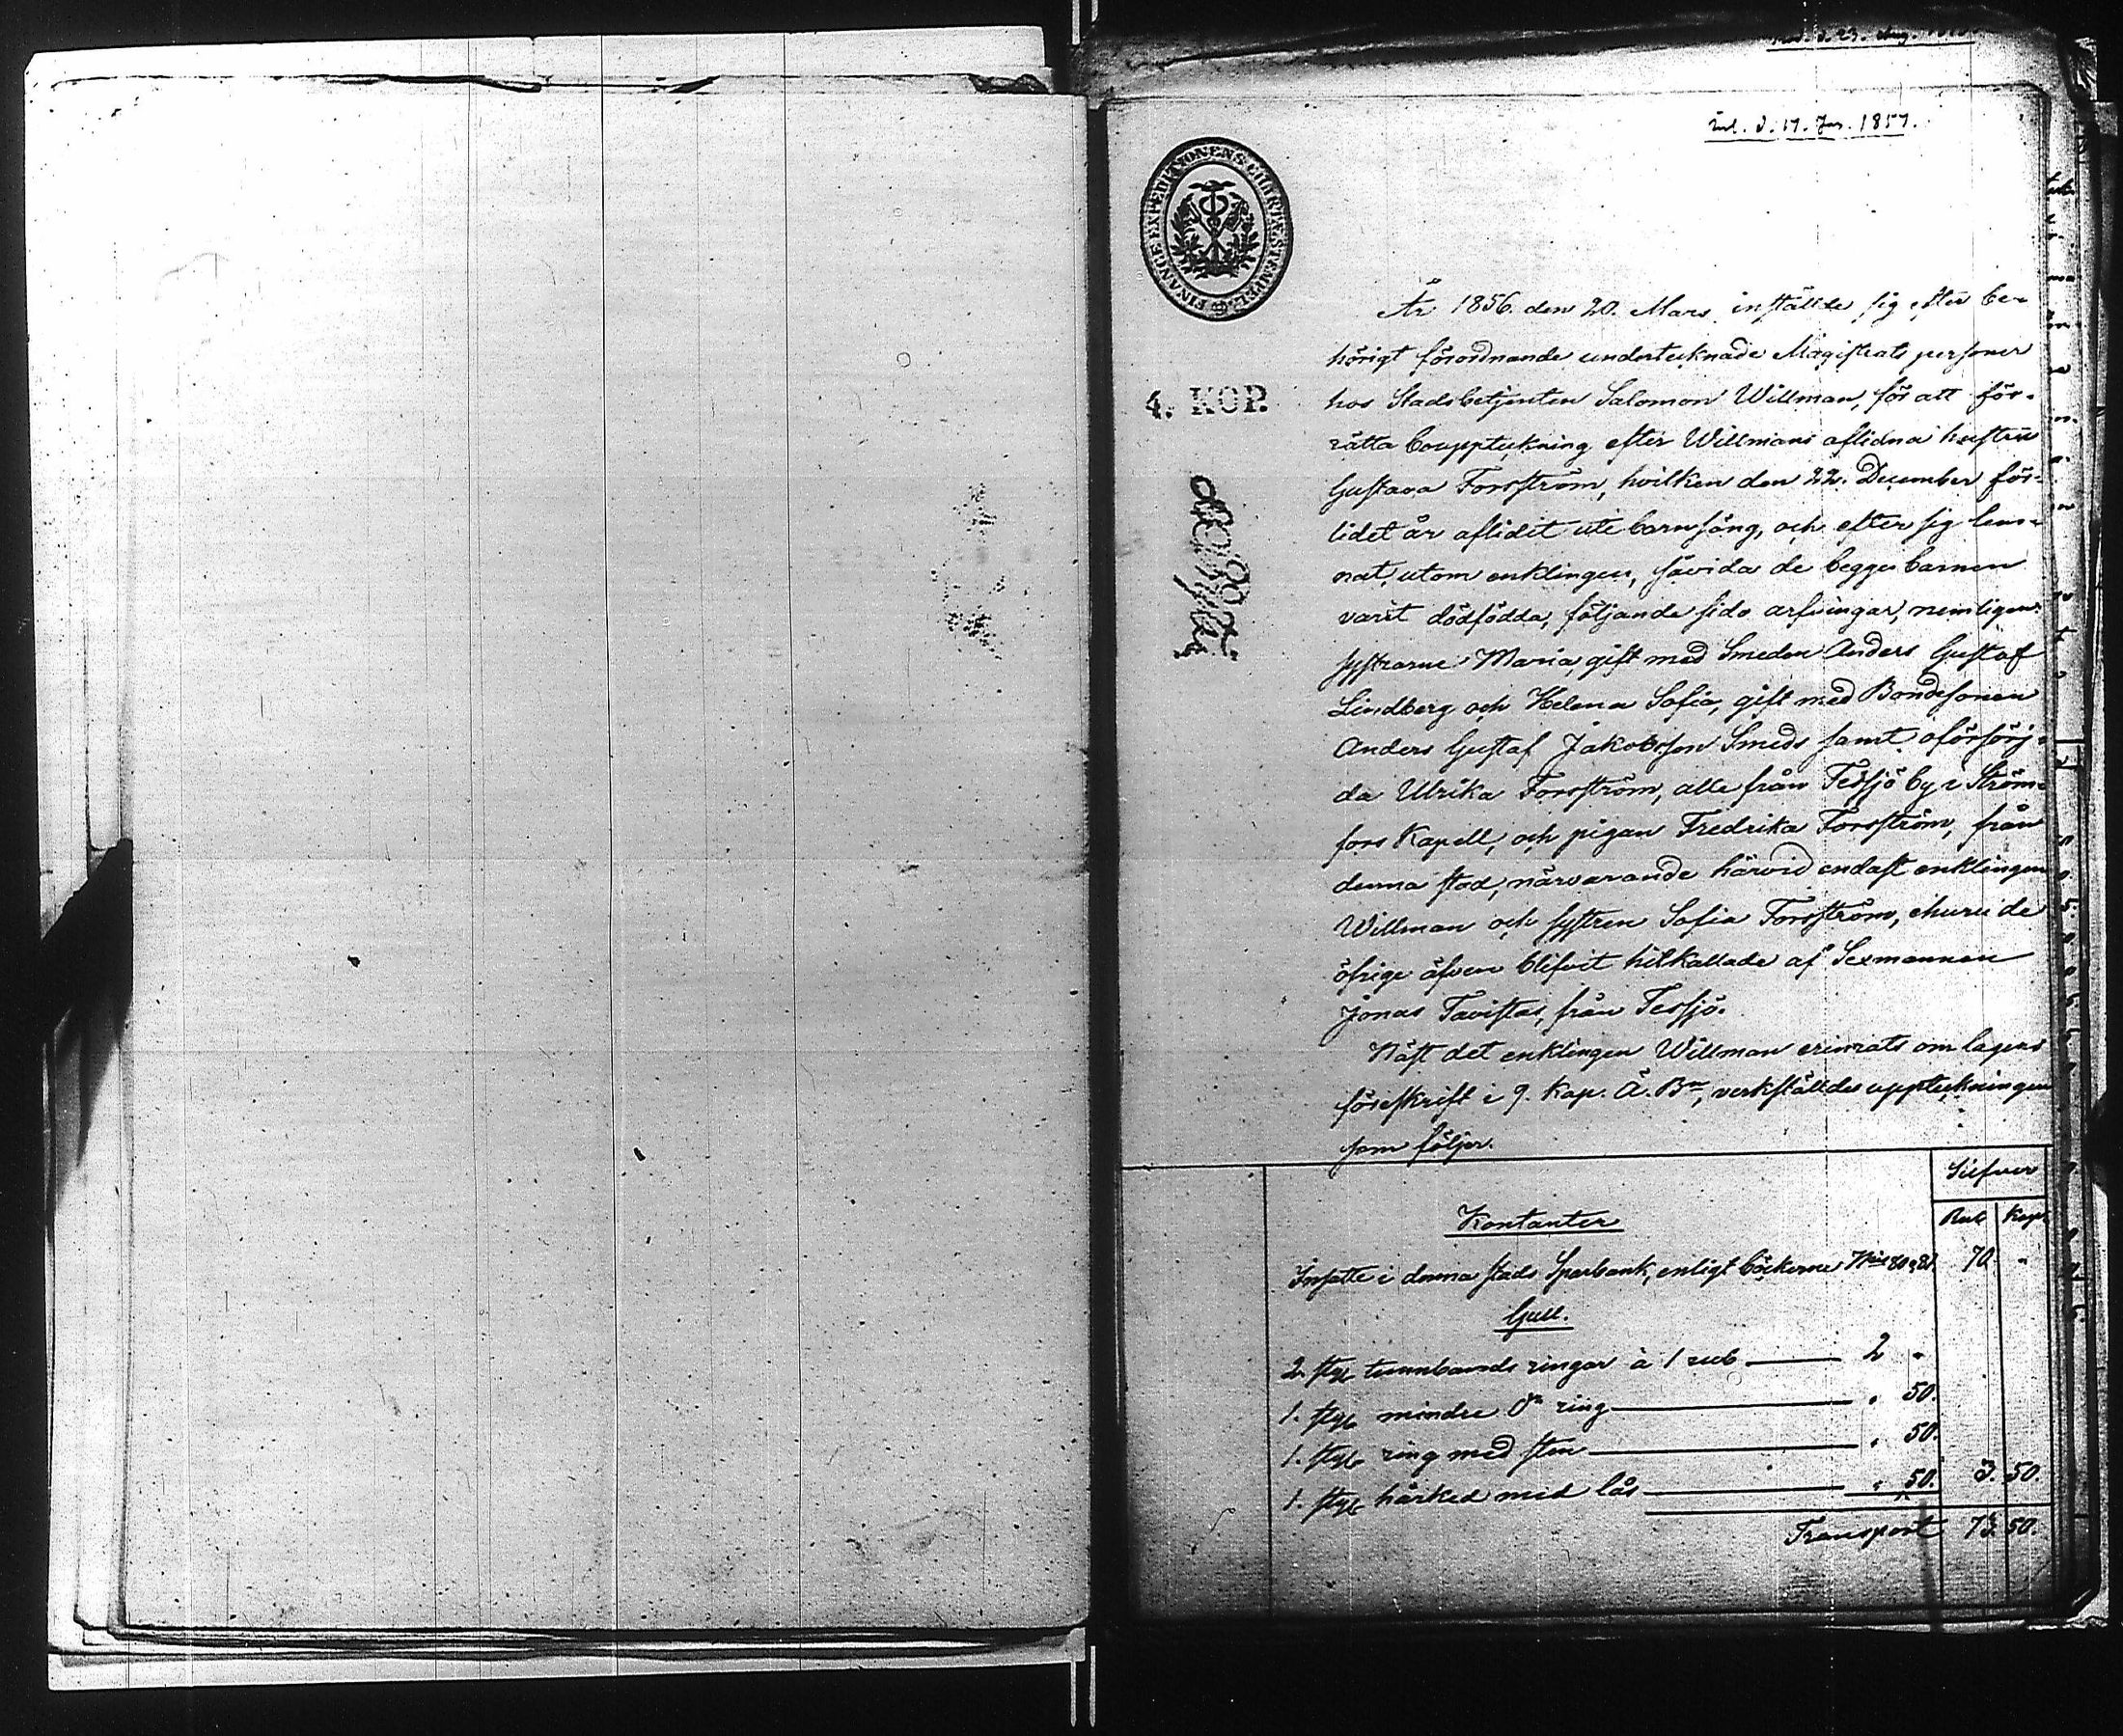 inl. d. 17. Jan. 1857.
FINANCE EXPEDITIONENS CHARTÆ STEMPEL
4. KOP.
År 1856. den 20. Mars inställde sig efter be-
hörigt förordnande undertecknade Magistrats personer
hos Stadsbetjenten Salomon Willman, för att för-
rätta bouppteckning efter Willmans aflidna hustru
Gustava Forsström, hvilken den 22. December för-
lidet år aflidit uti barnsäng, och efter sig lem-
nat, utom enklingen, såvida de begge barnen
varit dödfödda, följande sido arfvingar, nemligen:
systrarne Maria, gift med Smeden Anders Gustaf
Lindberg och Helena Sofia, gift med Bondesonen
Anders Gustaf Jakobsson Smeds samt oförsörj-
da Ulrika Forsström, alla från Tessjö by i Ström-
fors Kapell, och pigan Fredrika Forsström, från
denna stad, närvarande härvid endast enklingen
Willman och systren Sofia Forsström, churu de
öfrige äfven blifvit hitkallade af Sexmannen
Jonas Tavistas, från Tessjö.
Näst det enklingen Willman erinrats om lagens
föreskrift i 9. Kap. Ä. Bn, verkställdes uppteckningen
som följer.
Silfver
Rub Kop
Kontanter
Insatte i denna stads Sparbank, enligt böckerne 70. "
Gull.
2. styck tunnbands ringar à 1 rub 2 "
1. styck mindre do ring " 50.
1. styck ring med sten " 50.
1. styck hårked med lås " 50. 3. 50.
Transport 73. 50.